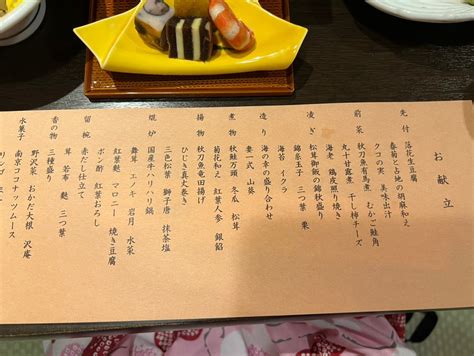 お献立
先付
落花生豆腐
春菊と占地の胡麻和え
クコの実 美味出汁
前菜
秋刀魚の有馬煮 むかご鮭角
丸十甘露煮 干し柿チーズ
海老 鶏皮照り焼き
凌ぎ
松茸御飯の錦秋盛り
錦糸玉子 三つ葉 栗
海苔 イクラ
造り
海の幸の盛り合わせ
妻一式 山葵
煮物
秋鮭万頭 冬瓜 松茸
菊花和え 紅葉人参 銀餡
揚物
秋刀魚竜田揚げ
ひじき真丈巻き
三色松葉 獅子唐 抹茶塩
焜炉
国産牛ハリハリ鍋
舞茸 エノキ 岩月 水菜
紅葉麩 マロニー 焼き豆腐
ポン酢 紅葉おろし
留椀
赤だし仕立て
茸 若布 麩 三つ葉
香の物
三種盛り
野沢菜 おかだ大根 沢庵
水菓子
南京ココナッツムース